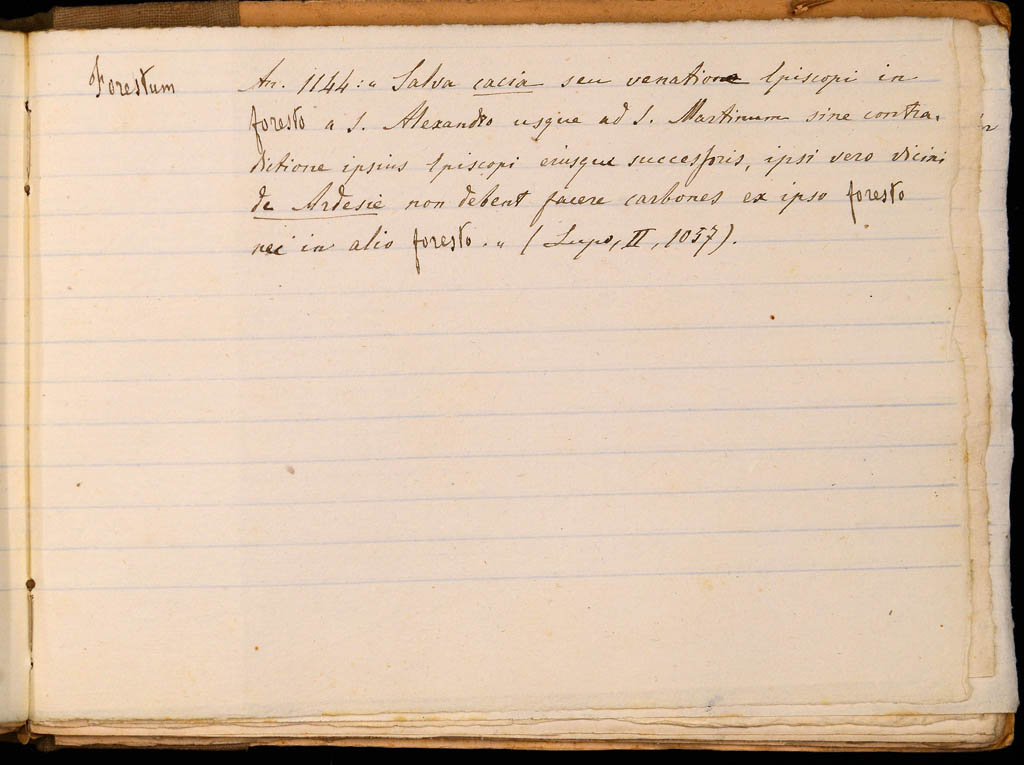 Forestum An. 1144: „ Salva cacia seu venatione Episcopi in
foresto a S. Alexandro usque ad S. Martinum sine contra-
dictione ipsius Episcopi eiusque successoris, ipsi vero vicini
de Ardesie non debent facere carbones ex ipso foresto
nec in alio foresto. „ (Lupo, II, 1057).